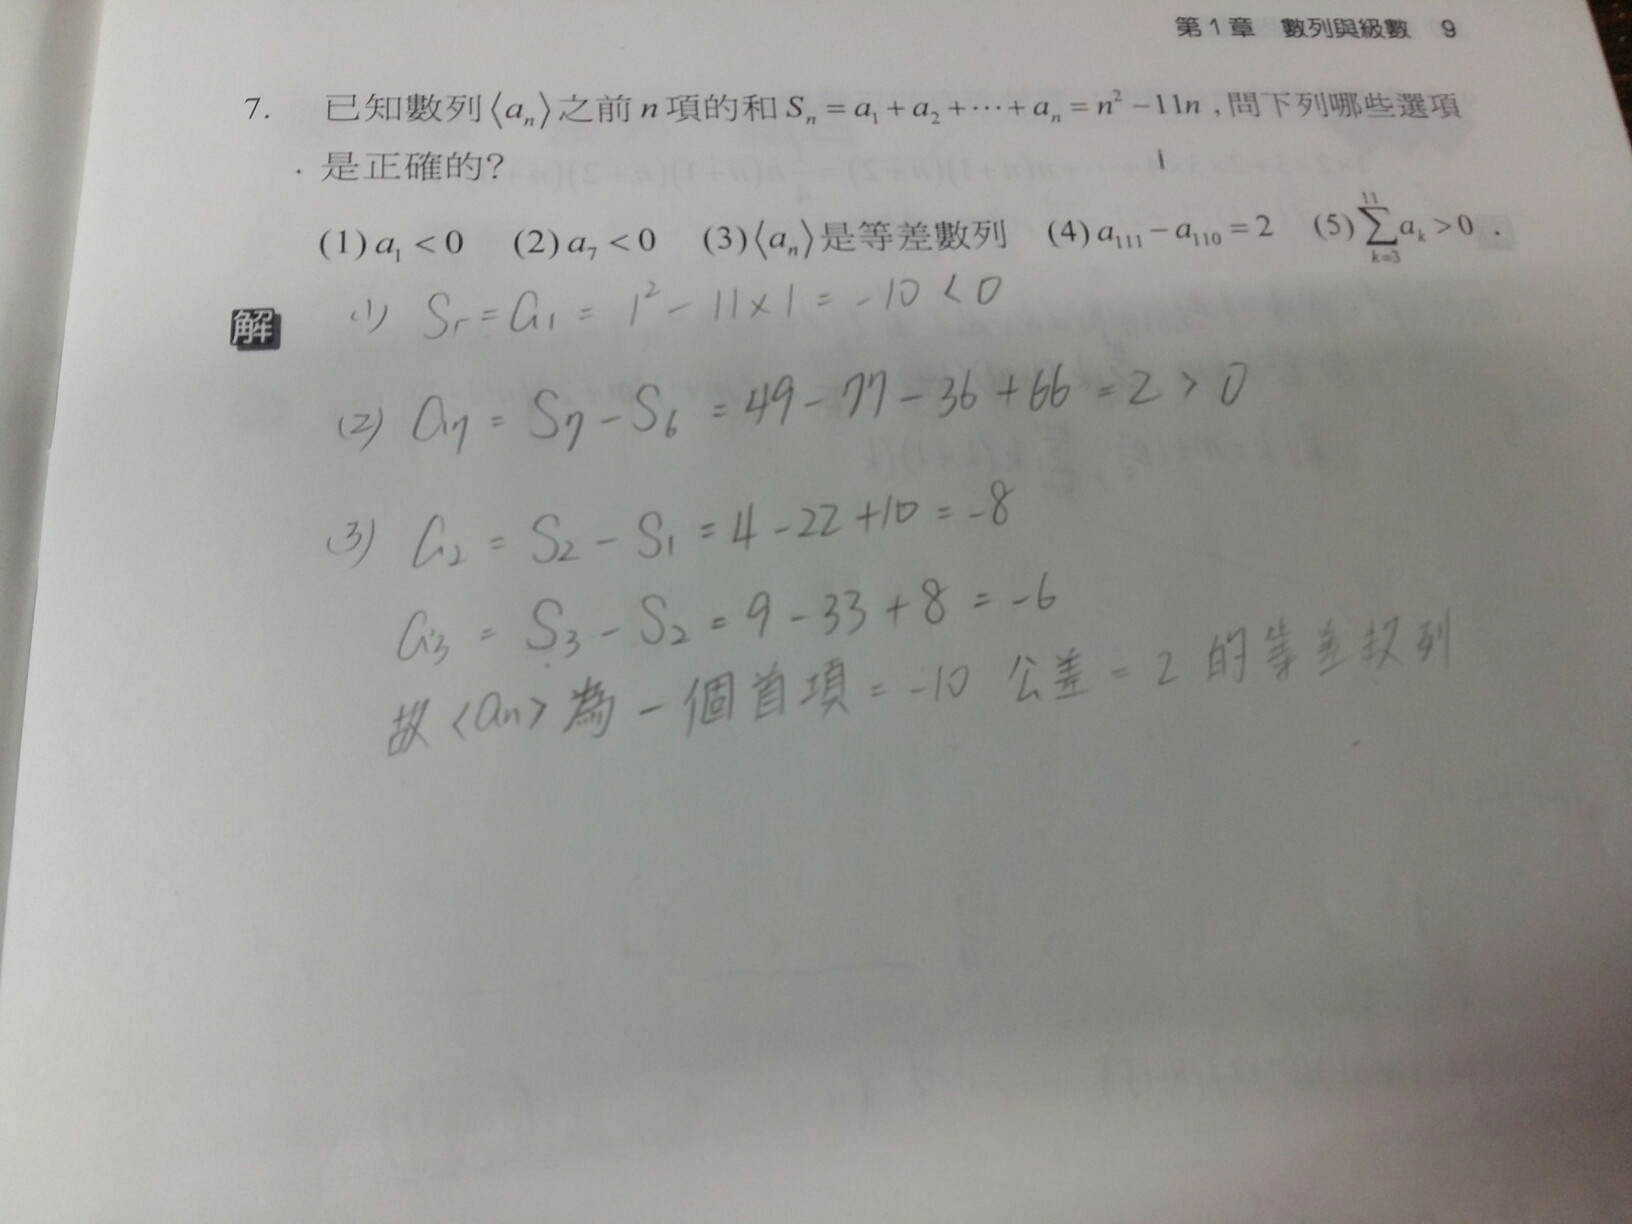 第1章 數列與級數 9
7. 已知數列⟨aₙ⟩之前n項的和Sₙ=a₁+a₂+⋯+aₙ=n²−11n,問下列哪些選項
是正確的?
(1)a₁<0 (2)a₇<0 (3)⟨aₙ⟩是等差數列 (4)a₁₁₁−a₁₁₀=2 (5)∑ₖ₌₃¹¹aₖ>0.
解 (1) S₁=a₁=1²−11×1=−10<0
(2) a₇=S₇−S₆=49−77−36+66=2>0
(3) a₂=S₂−S₁=4−22+10=−8
a₃=S₃−S₂=9−33+8=−6
故⟨aₙ⟩為一個首項=−10 公差=2的等差数列